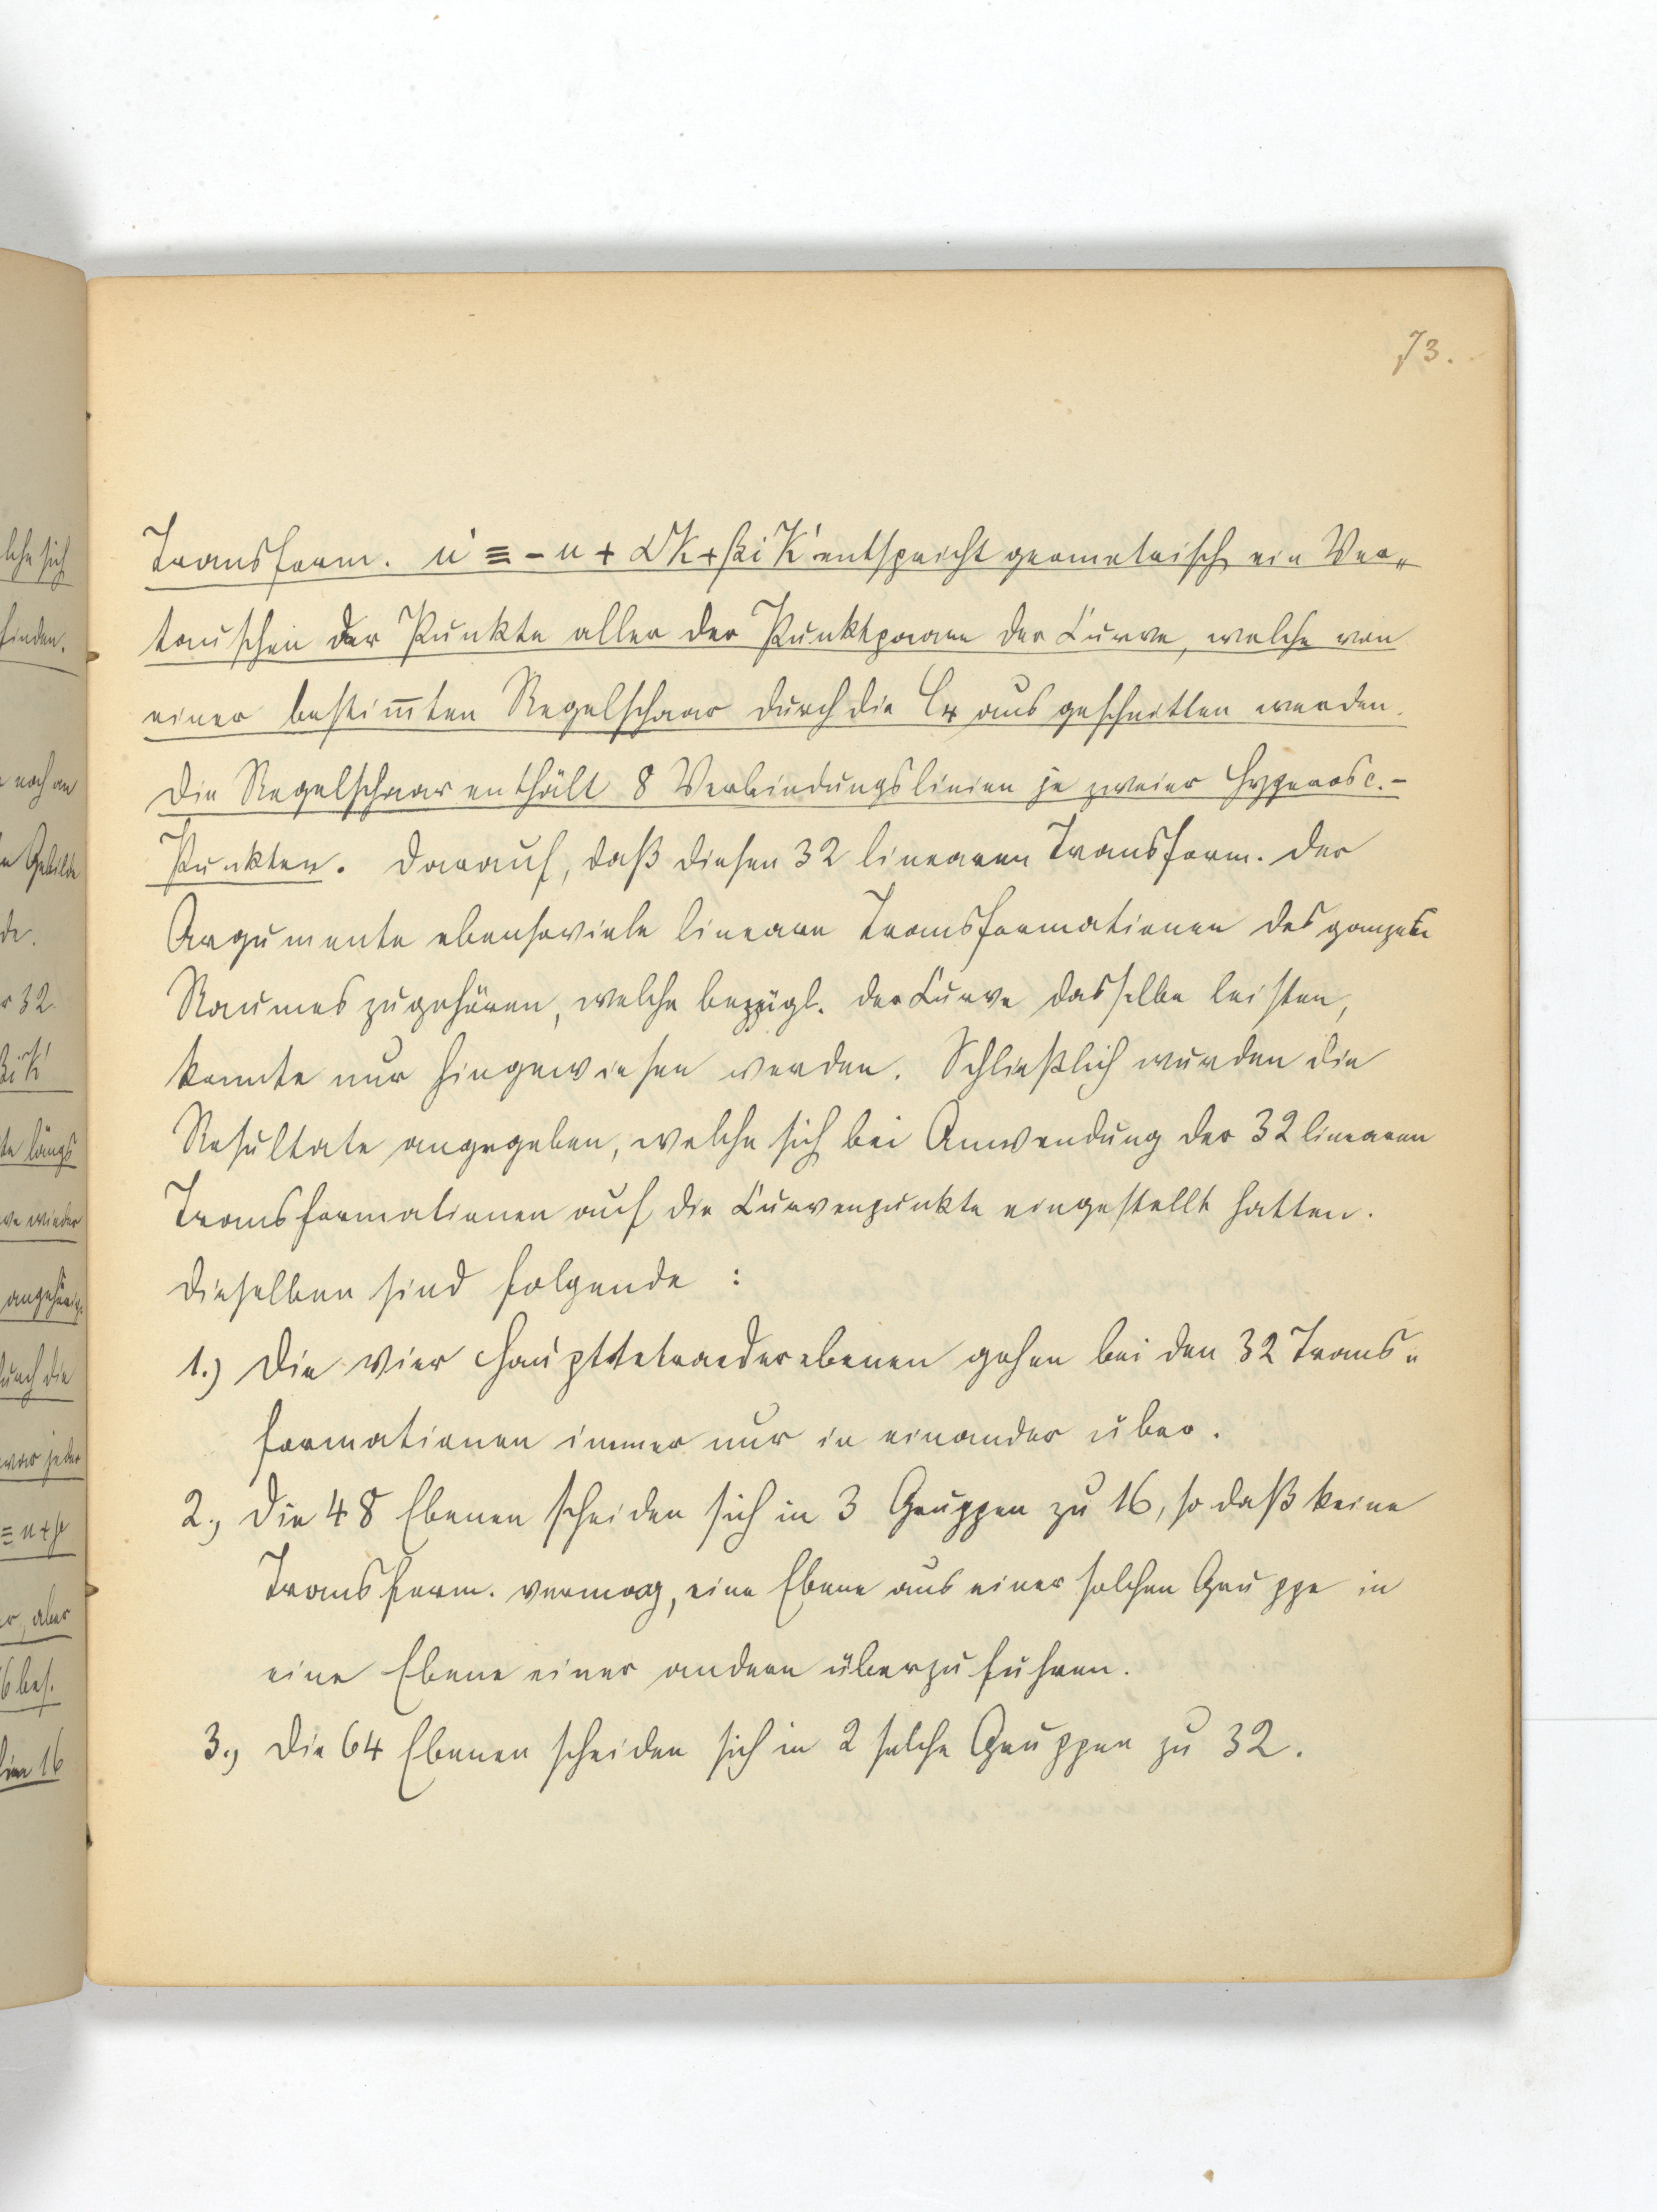 73.
Transform. u' ≡ - u + αK + βiK' entspricht geometrisch ein Ver„
tauschen der Punkte aller der Punktpaare der Curve, welche von
einer bestim̅ten Regelschaar durch die C₄ ausgeschnitten werden.
Die Regelschaar enthält 8 Verbindungslinien je zweier Hyperosc.-
Punkten. Darauf, daß diesen 32 linearen Transform. der
Argumente ebensoviele lineare Transformationen des ganzen
Raumes zugehören, welche bezügl. der Curve dasselbe leisten,
konnte nur hingewiesen werden. Schließlich wurden die
Resultate angegeben, welche sich bei Anwendung der 32 linearen
Transformationen auf die Curvenpunkte eingestellt hatten.
Dieselben sind folgende :
1.) Die vier Haupttetraederebenen gehen bei den 32 Trans„
formationen immer nur in einander über.
2., Die 48 Ebenen scheiden sich in 3 Gruppen zu 16, so daß keine
Transform. vermag, eine Ebene aus einer solchen Gruppe in
eine Ebene einer andern überzuführen.
3., Die 64 Ebenen scheiden sich in 2 solche Gruppen zu 32.